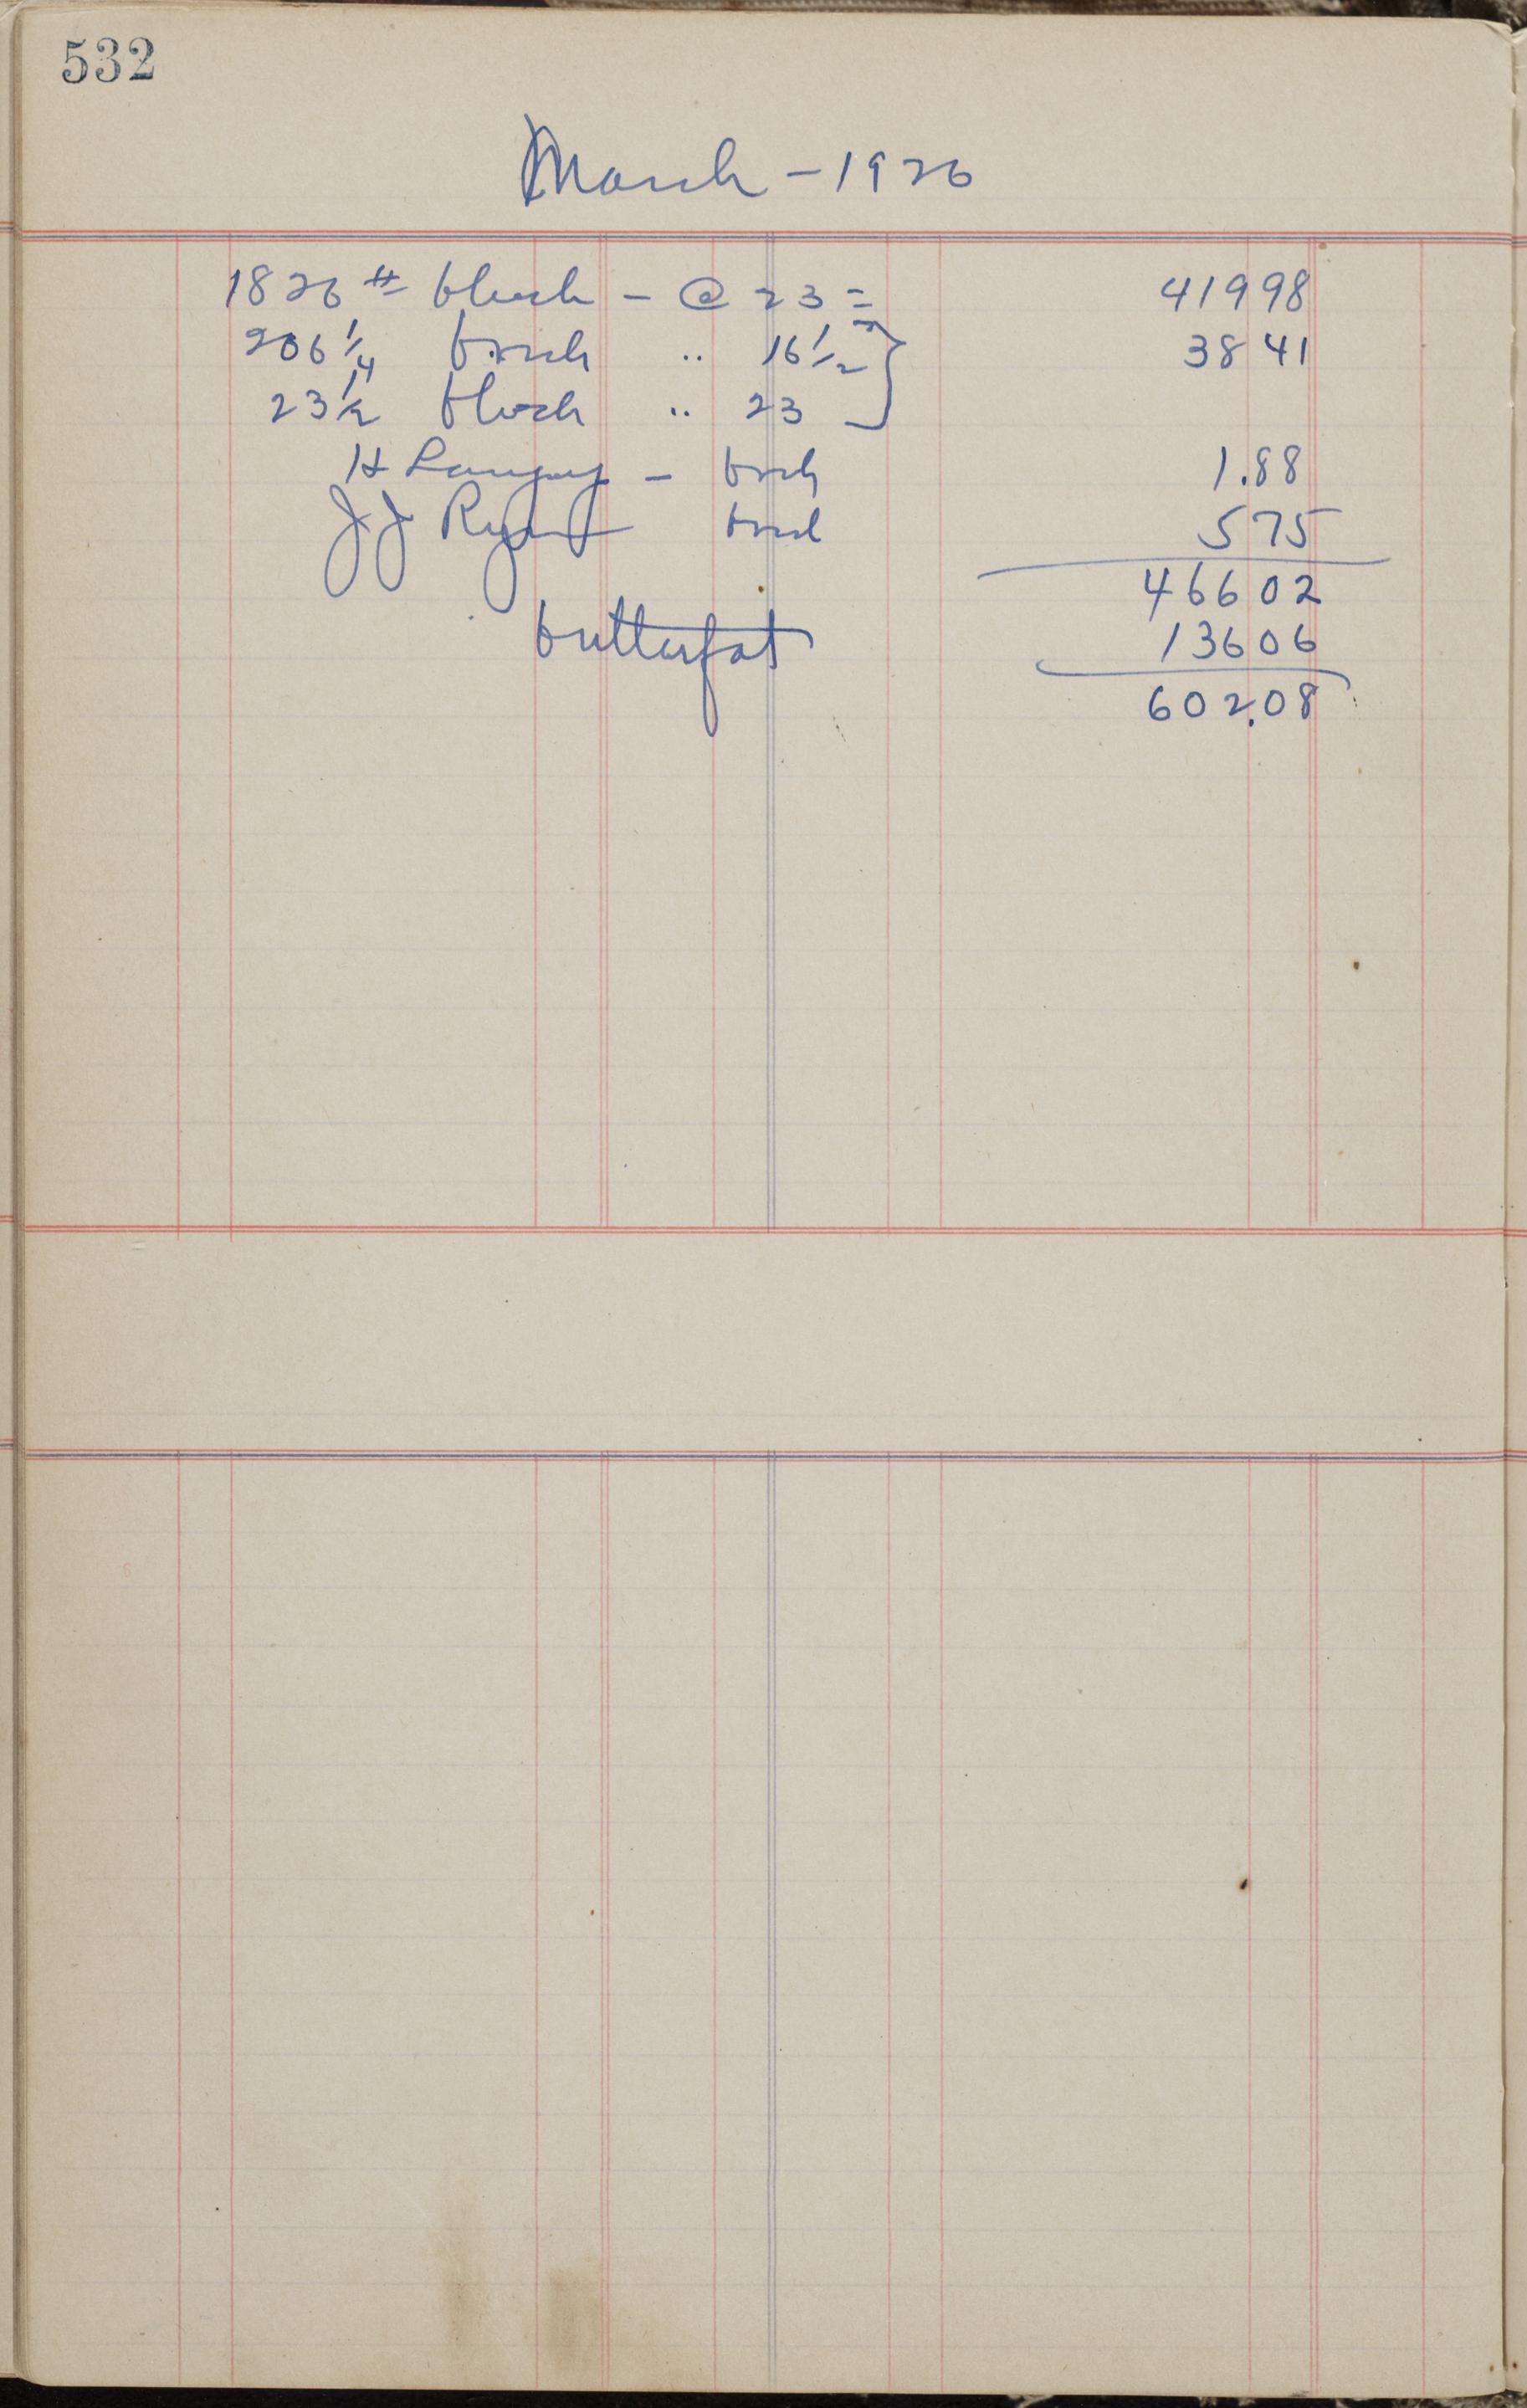 532
March - 1926
1826 # block - @ 23 = 41998
206 1/4 brick " 16 1/2 } 3841
23 1/2 block " 23
H - brick 1.88
J J Ryan brick 575
46602
butterfat 13606
602.08